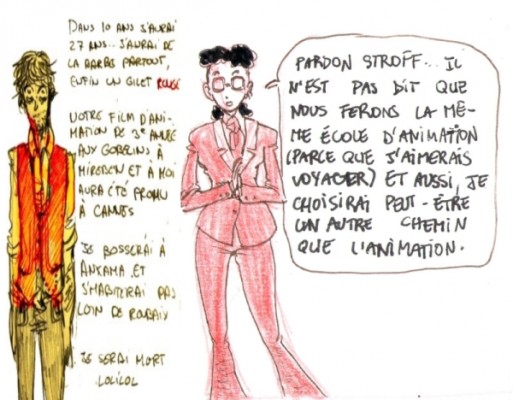 DANS 10 ANS J'AURAI
27 ANS... J'AURAI DE
LA BARBE PARTOUT,
ENFIN UN GILET ROUGE
NOTRE FILM D'ANI-
MATION DE 3e ANNÉE
AUX GOBELINS À
MIROBON ET À MOI
AURA ÉTÉ PROMU
À CANNES
JE BOSSERAI À
ANKAMA ET
J'HABITERAI PAS
LOIN DE ROUBAIX
JE SERAI MORT
LOLILOL
PARDON STROFF... IL
N'EST PAS DIT QUE
NOUS FERONS LA MÊ-
ME ÉCOLE D'ANIMATION
(PARCE QUE J'AIMERAIS
VOYAGER) ET AUSSI, JE
CHOISIRAI PEUT-ÊTRE
UN AUTRE CHEMIN
QUE L'ANIMATION.